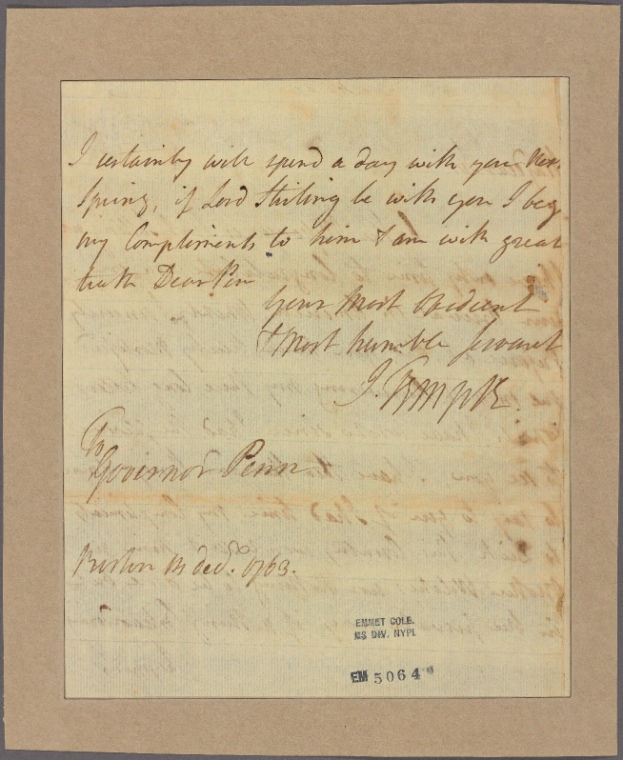 I certainly will spend a day with you Nex
Spring, if Lord Stirling be with you I beg
my Compliments to him & am with great
truth Dear Sir
Your Most Obedient
& Most humble Servant
J. Temple.
To
Governor Penn
Boston 14 Decr. 1763.
EMMET COLL.
MS DIV. NYPL
EM 5064